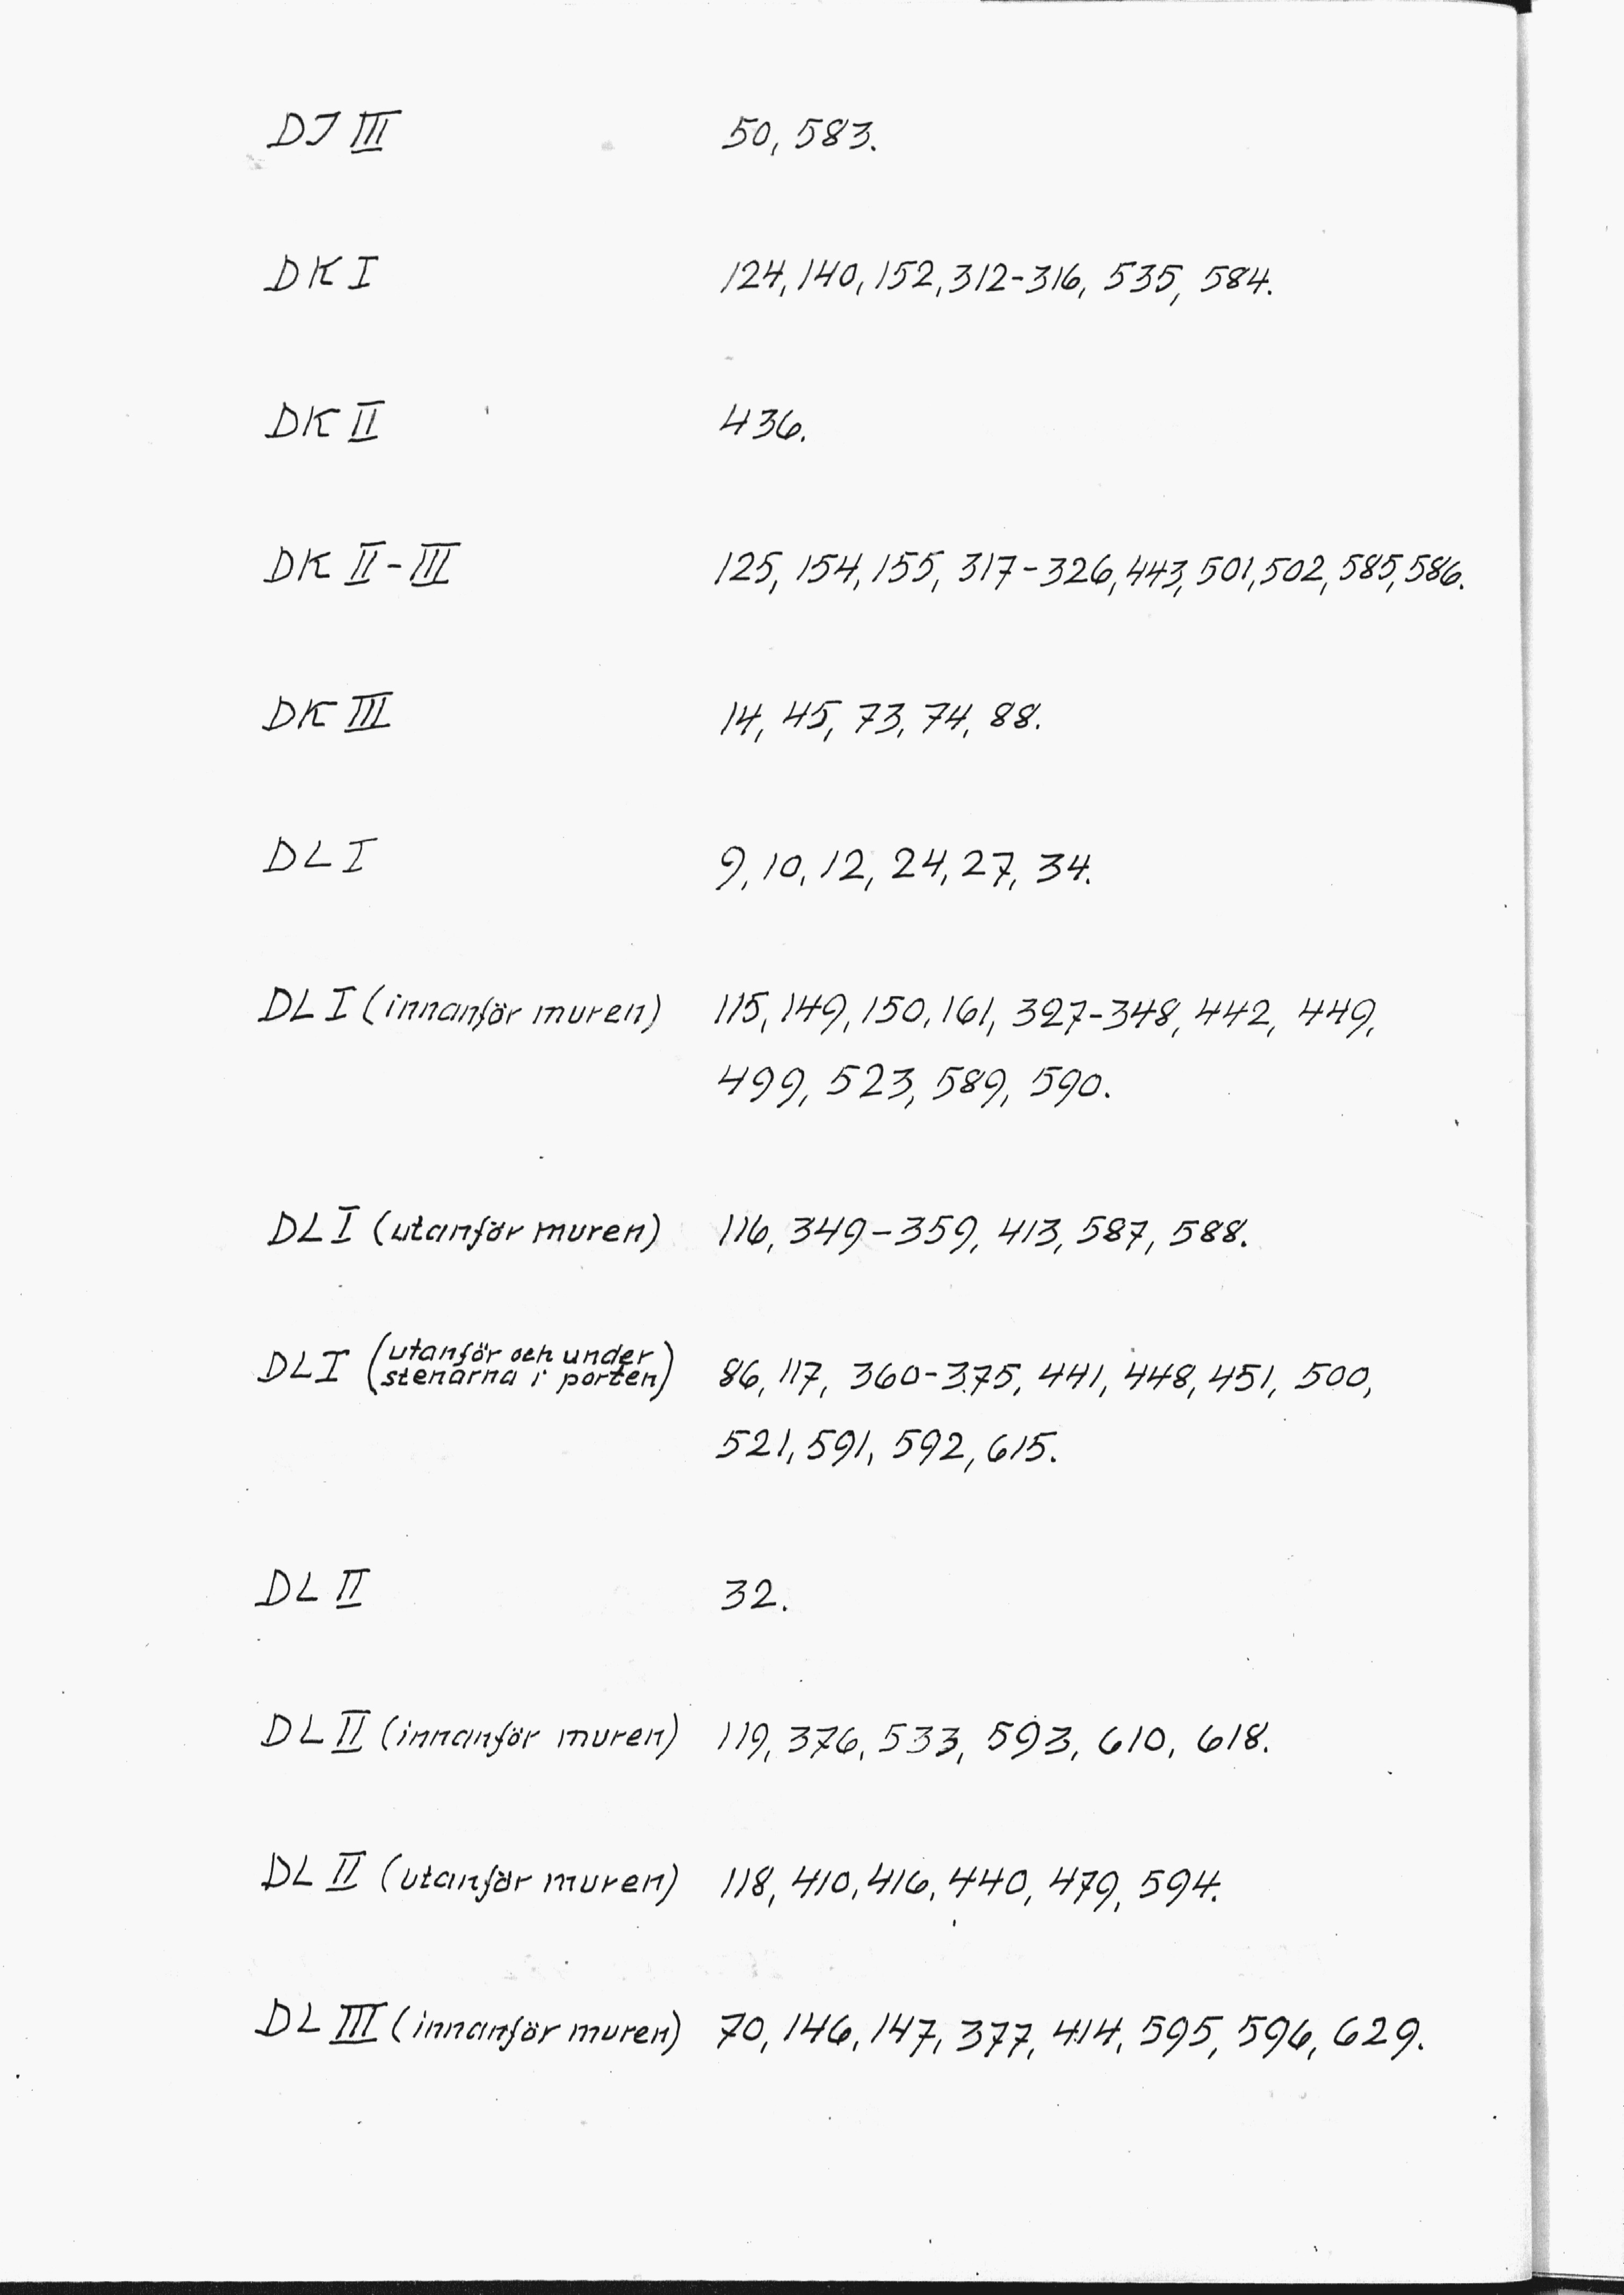 DJ III 50, 583.
DK I 124, 140, 152, 312-316, 535, 584.
DK II 436.
DK II-III 125, 154, 155, 317-326, 443, 501, 502, 585, 586.
DK III 14, 45, 73, 74, 88.
DL I 9, 10, 12, 24, 27, 34.
DL I (innanför muren) 115, 149, 150, 161, 327-348, 442, 449,
499, 523, 589, 590.
DL I (utanför muren) 116, 349-359, 413, 587, 588.
DL I (utanför och under
stenarna i porten) 86, 117, 360-375, 441, 448, 451, 500,
521, 591, 592, 615.
DL II 32.
DL II (innanför muren) 119, 376, 533, 593, 610, 618.
DL II (utanför muren) 118, 410, 416, 440, 479, 594.
DL III (innanför muren) 70, 146, 147, 377, 414, 595, 596, 629.